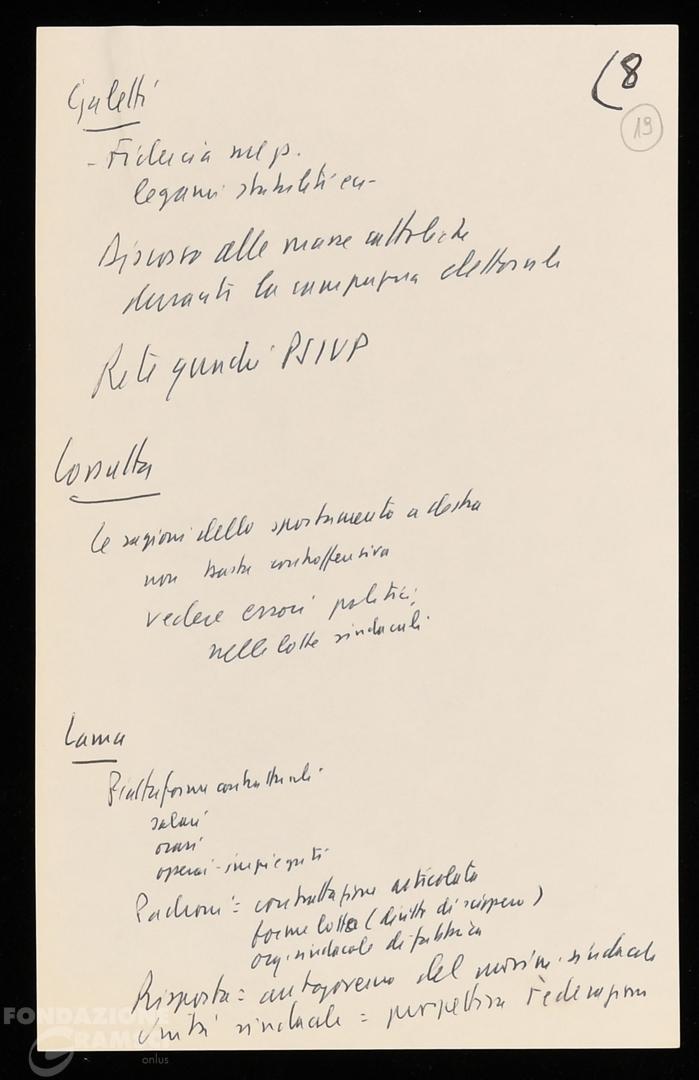 (8
19
Galetti
- Fiducia nel p.
legami stabiliti
Discorso alle masse cattoliche
durante la campagna elettorale
Rete quadri PSIUP
Cossutta
Le ragioni dello spostamento a destra
non basta controffensiva
vedere errori politici,
nelle lotte sindacali.
Lama
Piattaforme contrattuali.
salari
orari
operai-impiegati
Padroni = contrattazione articolata
forme lotta (diritto di sciopero)
org. sindacale di fabbrica
Risposta = autogoverno del movim. sindacale
Unità sindacale = prospettiva Federazioni
FONDAZIONE
GRAMSCI
onlus